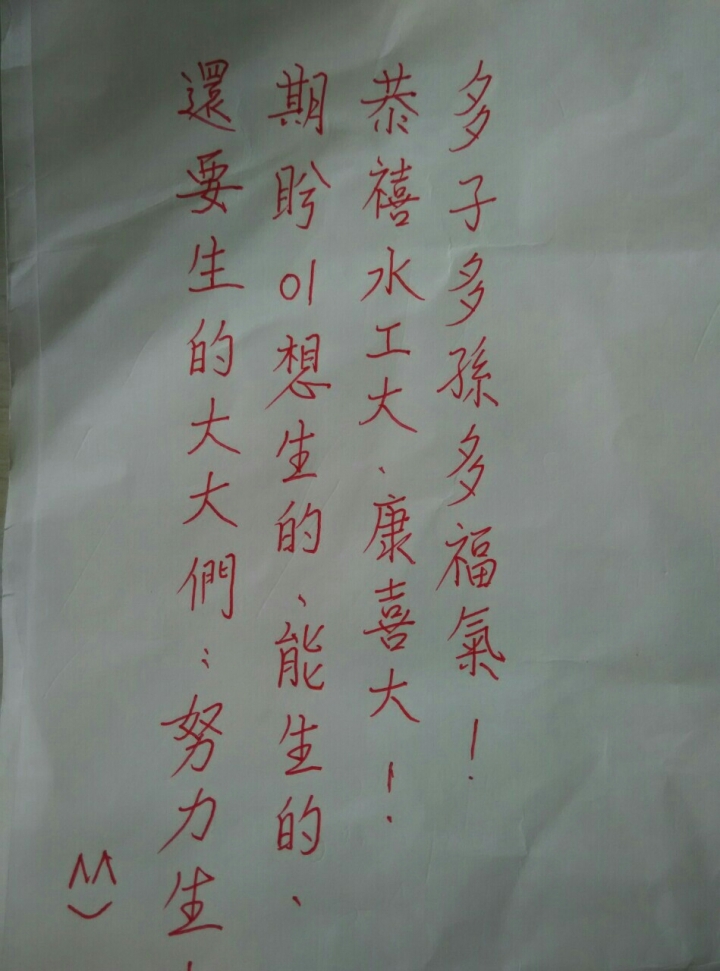 多子多孫多福氣！
恭禧水工大、康喜大！
期盻01想生的、能生的、
還要生的大大們：努力生！
^^